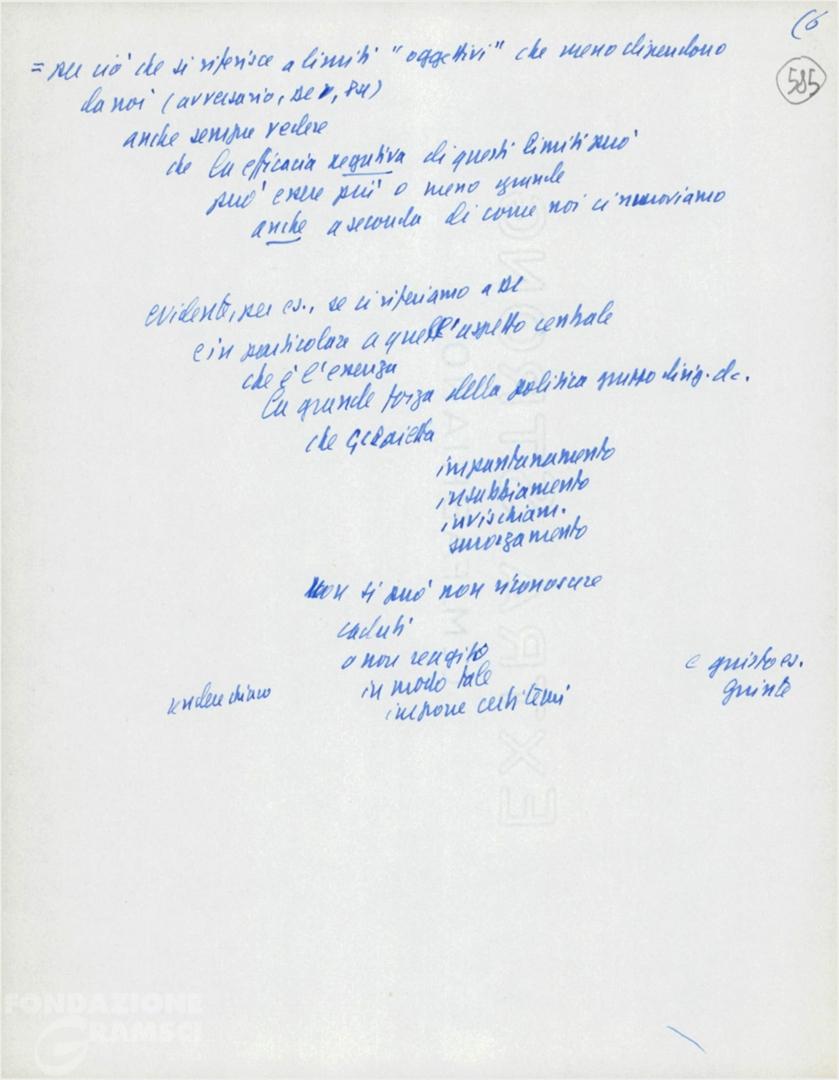 (6
585
= per ciò che si riferisce a limiti "oggettivi" che meno dipendono
da noi (avversario, DC, PSI)
anche sempre vedere
che la efficacia negativa di questi limiti può
può essere più o meno grande
anche a seconda di come noi ci muoviamo
evidente, per es., se ci riferiamo a DC
e in particolare a quell'aspetto centrale
che è l'essenza
la grande forza della politica gruppo dirig. d.c.
che
impantanamento
insabbiamento
invischiam.
smorzamento
Non si può non riconoscere
caduti
o non reagito
in modo tale
imporre certi temi
vedere chiaro
e giusto es.
giunte
FONDAZIONE
GRAMSCI
EX-